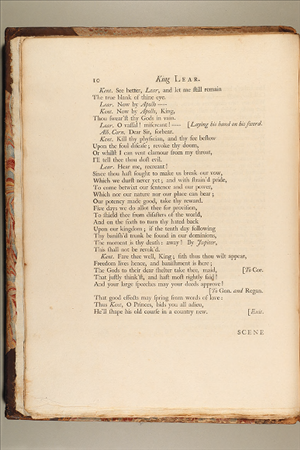 10 King LEAR.
Kent. See better, Lear, and let me still remain
The true blank of thine eye.
Lear. Now by Apollo —
Kent. Now by Apollo, King,
Thou swear'st thy Gods in vain.
Lear. O vassal! miscreant! — [Laying his hand on his sword.
Alb. Corn. Dear Sir, forbear.
Kent. Kill thy physician, and thy fee bestow
Upon the foul disease; revoke thy doom,
Or whilst I can vent clamour from my throat,
I'll tell thee thou dost evil.
Lear. Hear me, miscreant!
Since thou hast sought to make us break our vow,
Which we durst never yet; and with strain'd pride,
To come betwixt our sentence and our power;
Which nor our nature nor our place can bear;
Our potency made good, take thy reward.
Five days we do allot thee for provision,
To shield thee from disasters of the world,
And on the sixth to turn thy hated back
Upon our kingdom; if the tenth day following
Thy banish'd trunk be found in our dominions,
The moment is thy death: away! By Jupiter,
This shall not be revok'd.
Kent. Fare thee well, King; sith thou thus wilt appear,
Freedom lives hence, and banishment is here;
The Gods to their dear shelter take thee, maid, [To Cor.
That justly think'st, and hast most rightly said!
And your large speeches may your deeds approve!
[To Gon. and Regan.
That good effects may spring from words of love:
Thus Kent, O Princes, bids you all adieu,
He'll shape his old course in a country new. [Exit.
SCENE